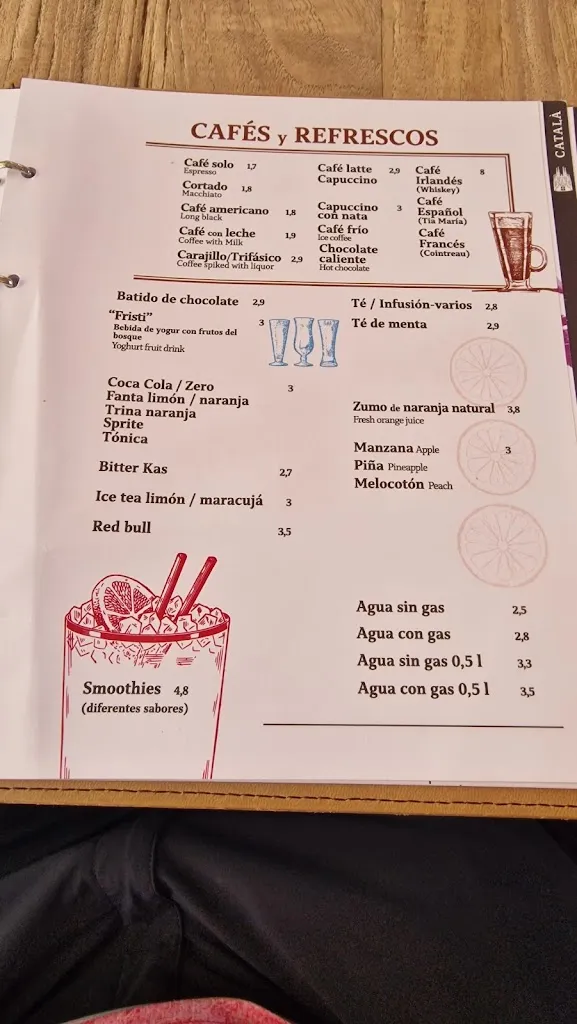 CATALÀ
CAFÉS y REFRESCOS
Café solo 1,7
Espresso
Cortado 1,8
Macchiato
Café americano 1,8
Long black
Café con leche 1,9
Coffee with Milk
Carajillo/Trifásico 2,9
Coffee spiked with liquor
Café latte 2,9
Capuccino
Capuccino 3
con nata
Café frío
Ice coffee
Chocolate
caliente
Hot chocolate
Café 8
Irlandés
(Whiskey)
Café
Español
(Tia Maria)
Café
Francés
(Cointreau)
Batido de chocolate 2,9
"Fristi" 3
Bebida de yogur con frutos del
bosque
Yoghurt fruit drink
Coca Cola / Zero 3
Fanta limón / naranja
Trina naranja
Sprite
Tónica
Bitter Kas 2,7
Ice tea limón / maracujá 3
Red bull 3,5
Smoothies 4,8
(diferentes sabores)
Té / Infusión-varios 2,8
Té de menta 2,9
Zumo de naranja natural 3,8
Fresh orange juice
Manzana Apple 3
Piña Pineapple
Melocotón Peach
Agua sin gas 2,5
Agua con gas 2,8
Agua sin gas 0,5 l 3,3
Agua con gas 0,5 l 3,5